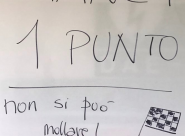 1 PUNTO
non si può
mollare!